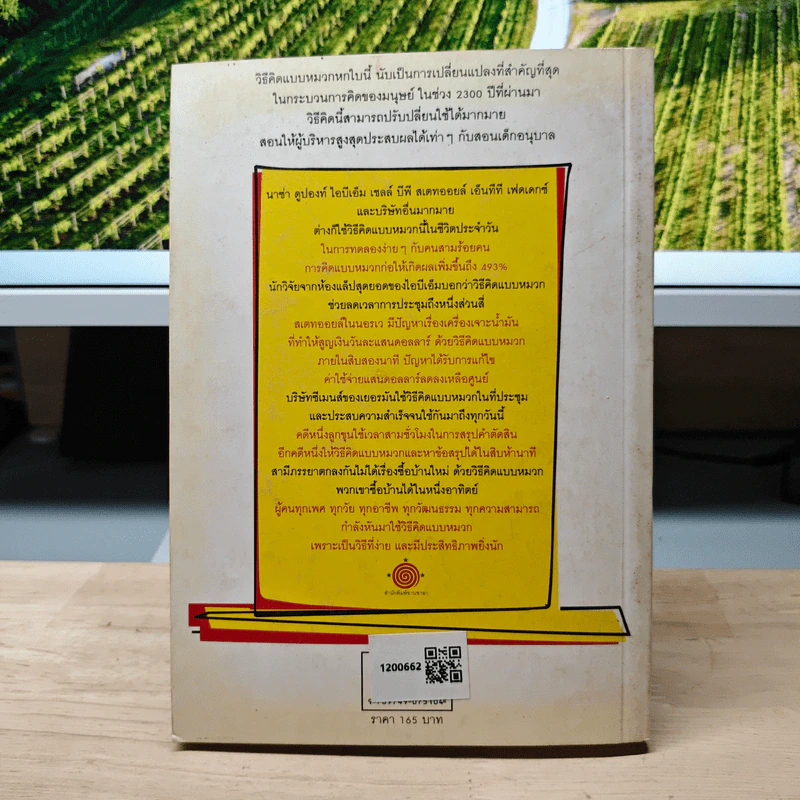 วิธีคิดแบบหมวกหกใบนี้ นับเป็นการเปลี่ยนแปลงที่สำคัญที่สุด
ในกระบวนการคิดของมนุษย์ ในช่วง 2300 ปีที่ผ่านมา
วิธีคิดนี้สามารถปรับเปลี่ยนใช้ได้มากมาย
สอนให้ผู้บริหารสูงสุดประสบผลได้เท่าๆ กับสอนเด็กอนุบาล
นาซ่า ดูปองท์ ไอบีเอ็ม เชลล์ บีพี สเตทออยล์ เอ็นทีที เฟดเดกซ์
และบริษัทอื่นมากมาย
ต่างก็ใช้วิธีคิดแบบหมวกนี้ในชีวิตประจำวัน
ในการทดลองง่ายๆ กับคนสามร้อยคน
การคิดแบบหมวกก่อให้เกิดผลเพิ่มขึ้นถึง 493%
นักวิจัยจากห้องแล็ปสุดยอดของไอบีเอ็มบอกว่าวิธีคิดแบบหมวก
ช่วยลดเวลาการประชุมถึงหนึ่งส่วนสี่
สเตทออยล์ในนอรเว มีปัญหาเรื่องเครื่องเจาะน้ำมัน
ที่ทำให้สูญเงินวันละแสนดอลลาร์ ด้วยวิธีคิดแบบหมวก
ภายในสิบสองนาที ปัญหาได้รับการแก้ไข
ค่าใช้จ่ายแสนดอลลาร์ลดลงเหลือศูนย์
บริษัทซีเมนส์ของเยอรมันใช้วิธีคิดแบบหมวกในที่ประชุม
และประสบความสำเร็จจนใช้กันมาถึงทุกวันนี้
คดีหนึ่งลูกขุนใช้เวลาสามชั่วโมงในการสรุปคำตัดสิน
อีกคดีหนึ่งให้วิธีคิดแบบหมวกและหาข้อสรุปได้ในสิบห้านาที
สามีภรรยาตกลงกันไม่ได้เรื่องซื้อบ้านใหม่ ด้วยวิธีคิดแบบหมวก
พวกเขาซื้อบ้านได้ในหนึ่งอาทิตย์
ผู้คนทุกเพศ ทุกวัย ทุกอาชีพ ทุกวัฒนธรรม ทุกความสามารถ
กำลังหันมาใช้วิธีคิดแบบหมวก
เพราะเป็นวิธีที่ง่าย และมีประสิทธิภาพยิ่งนัก
สำนักพิมพ์ขวานซาฮา
1200662
ราคา 165 บาท